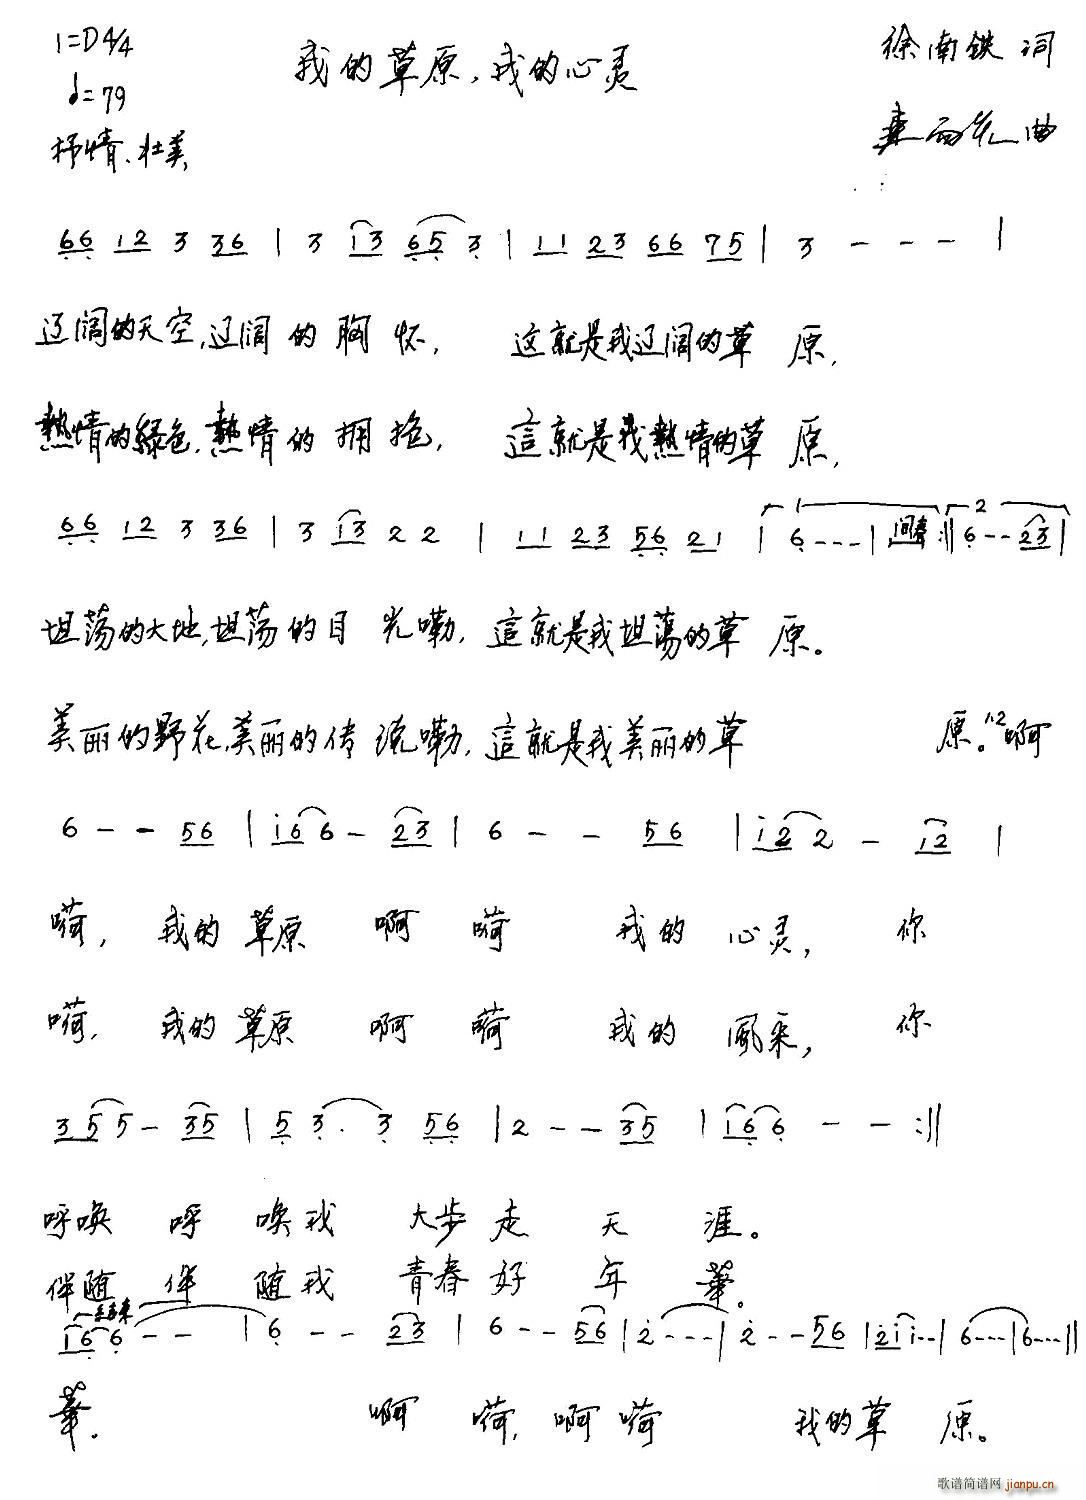 1=D 4/4 我的草原,我的心灵 徐南铁 词
♩=79
抒情、壮美 曲
66 12 3 36 | 3 13 65 3 | 11 23 66 75 | 3 - - - |
辽阔的天空,辽阔的胸怀, 这就是我辽阔的草原,
熱情的绿色,熱情的拥抱, 這就是我熱情的草原,
66 12 3 36 | 3 13 2 2 | 11 23 56 21 | 1 6 - - - | 间奏 :|| 2 6 - - 23 |
坦荡的大地,坦荡的目光嘞, 這就是我坦荡的草原。
美丽的野花,美丽的传说嘞, 這就是我美丽的草 原。1.2 啊
6 - - 56 | i6 6 - 23 | 6 - - 56 | i2 2 - 12 |
嗬, 我的草原 啊 嗬 我的 心灵, 你
嗬, 我的草原 啊 嗬 我的 風采, 你
35 5 - 35 | 5 3 . 3 56 | 2 - - 35 | 16 6 - - :||
呼唤 呼 唤我 大步走 天 涯。
伴随 伴 随我 青春好 年 華。
结束
16 6 - - | 6 - - 23 | 6 - - 56 | 2 - - - | 2 - - 56 | 2i i - - | 6 - - - | 6 - - - ||
華。 啊 嗬, 啊 嗬 我的草 原。
歌谱简谱网 jianpu.cn